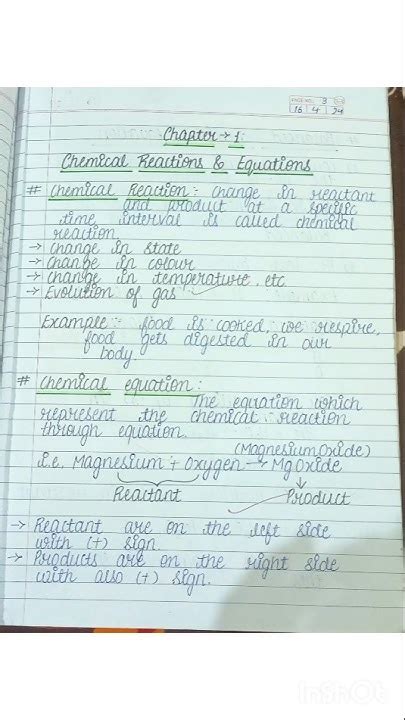 PAGE NO. 3
16 4 24
Chapter → 1:
Chemical Reactions & Equations
# Chemical Reaction:- Change in reactant
and product at a specific
time interval is called chemical
reaction.
→ Change in state
→ Change in colour
→ Change in temperature etc
→ Evolution of gas
Example:- food is cooked, we respire,
food gets digested in our
body.
# chemical equation:
The equation which
represent the chemical reaction
through equation.
(Magnesium Oxide)
i.e. Magnesium + Oxygen → Mg Oxide
Reactant Product
→ Reactant are on the left side
with (+) sign.
→ Products are on the right side
with also (+) sign.
InShot